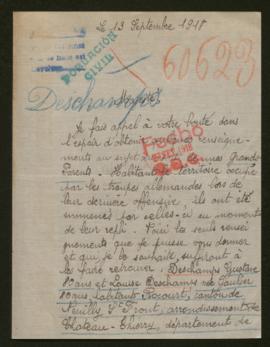 Le 13 Septembre 1918
POBLACIÓN
CIVIL
60623
Deschamps
Je fais appel à votre bonté dans
l'espoir d'obtenir quelques renseigne-
ments au sujet de mes Grands
Parents. Habitant le territoire occupé
par les troupes allemandes lors de
leur dernière offensive, ils ont été
emmenés par celles-ci au moment
de leur repli. Voici les seuls rensei-
gnements que je puisse vous donner
et qui je le souhaite, suffiront à
les faire retrouver. Deschamps Gustave
ans et Louise Deschamps née Gautier
ans habitants Rocourt, canton de
Neuilly St Front, arrondissement de
Château-Thierry, département de
Fecho
1918